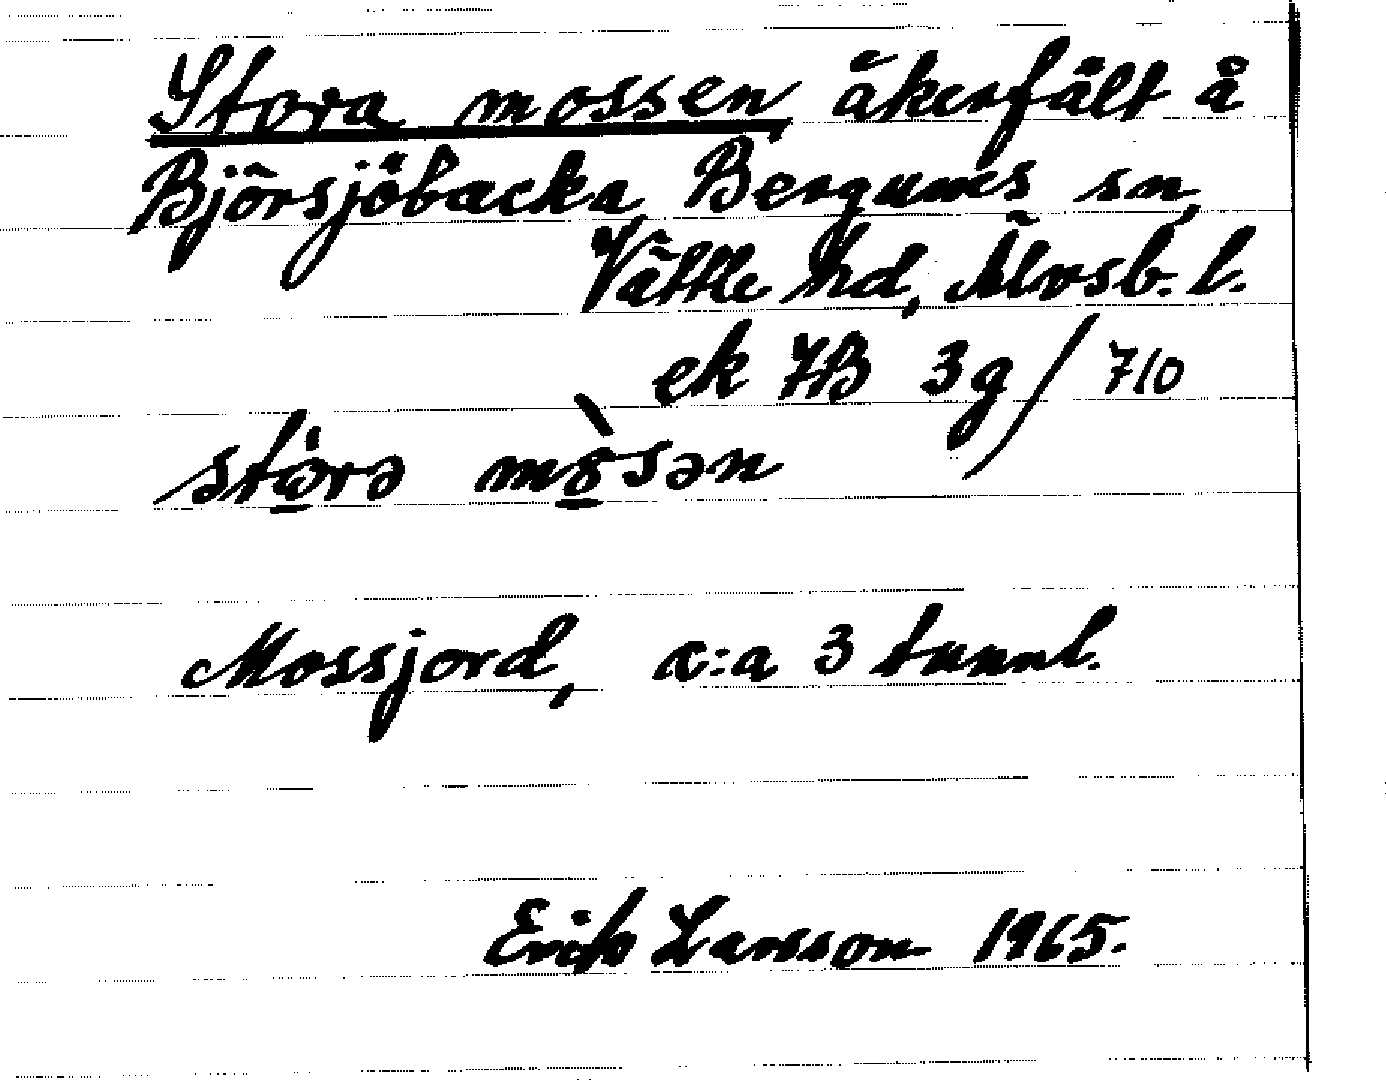 Stora mossen, åkerfält å
Björsjöbacka, Bergums sn,
Vättle hd, Älvsb. l.
ek 7B 3g / 710
stòrə mòsən
Mossjord, c:a 3 tunnl.
Erik Larsson 1965.